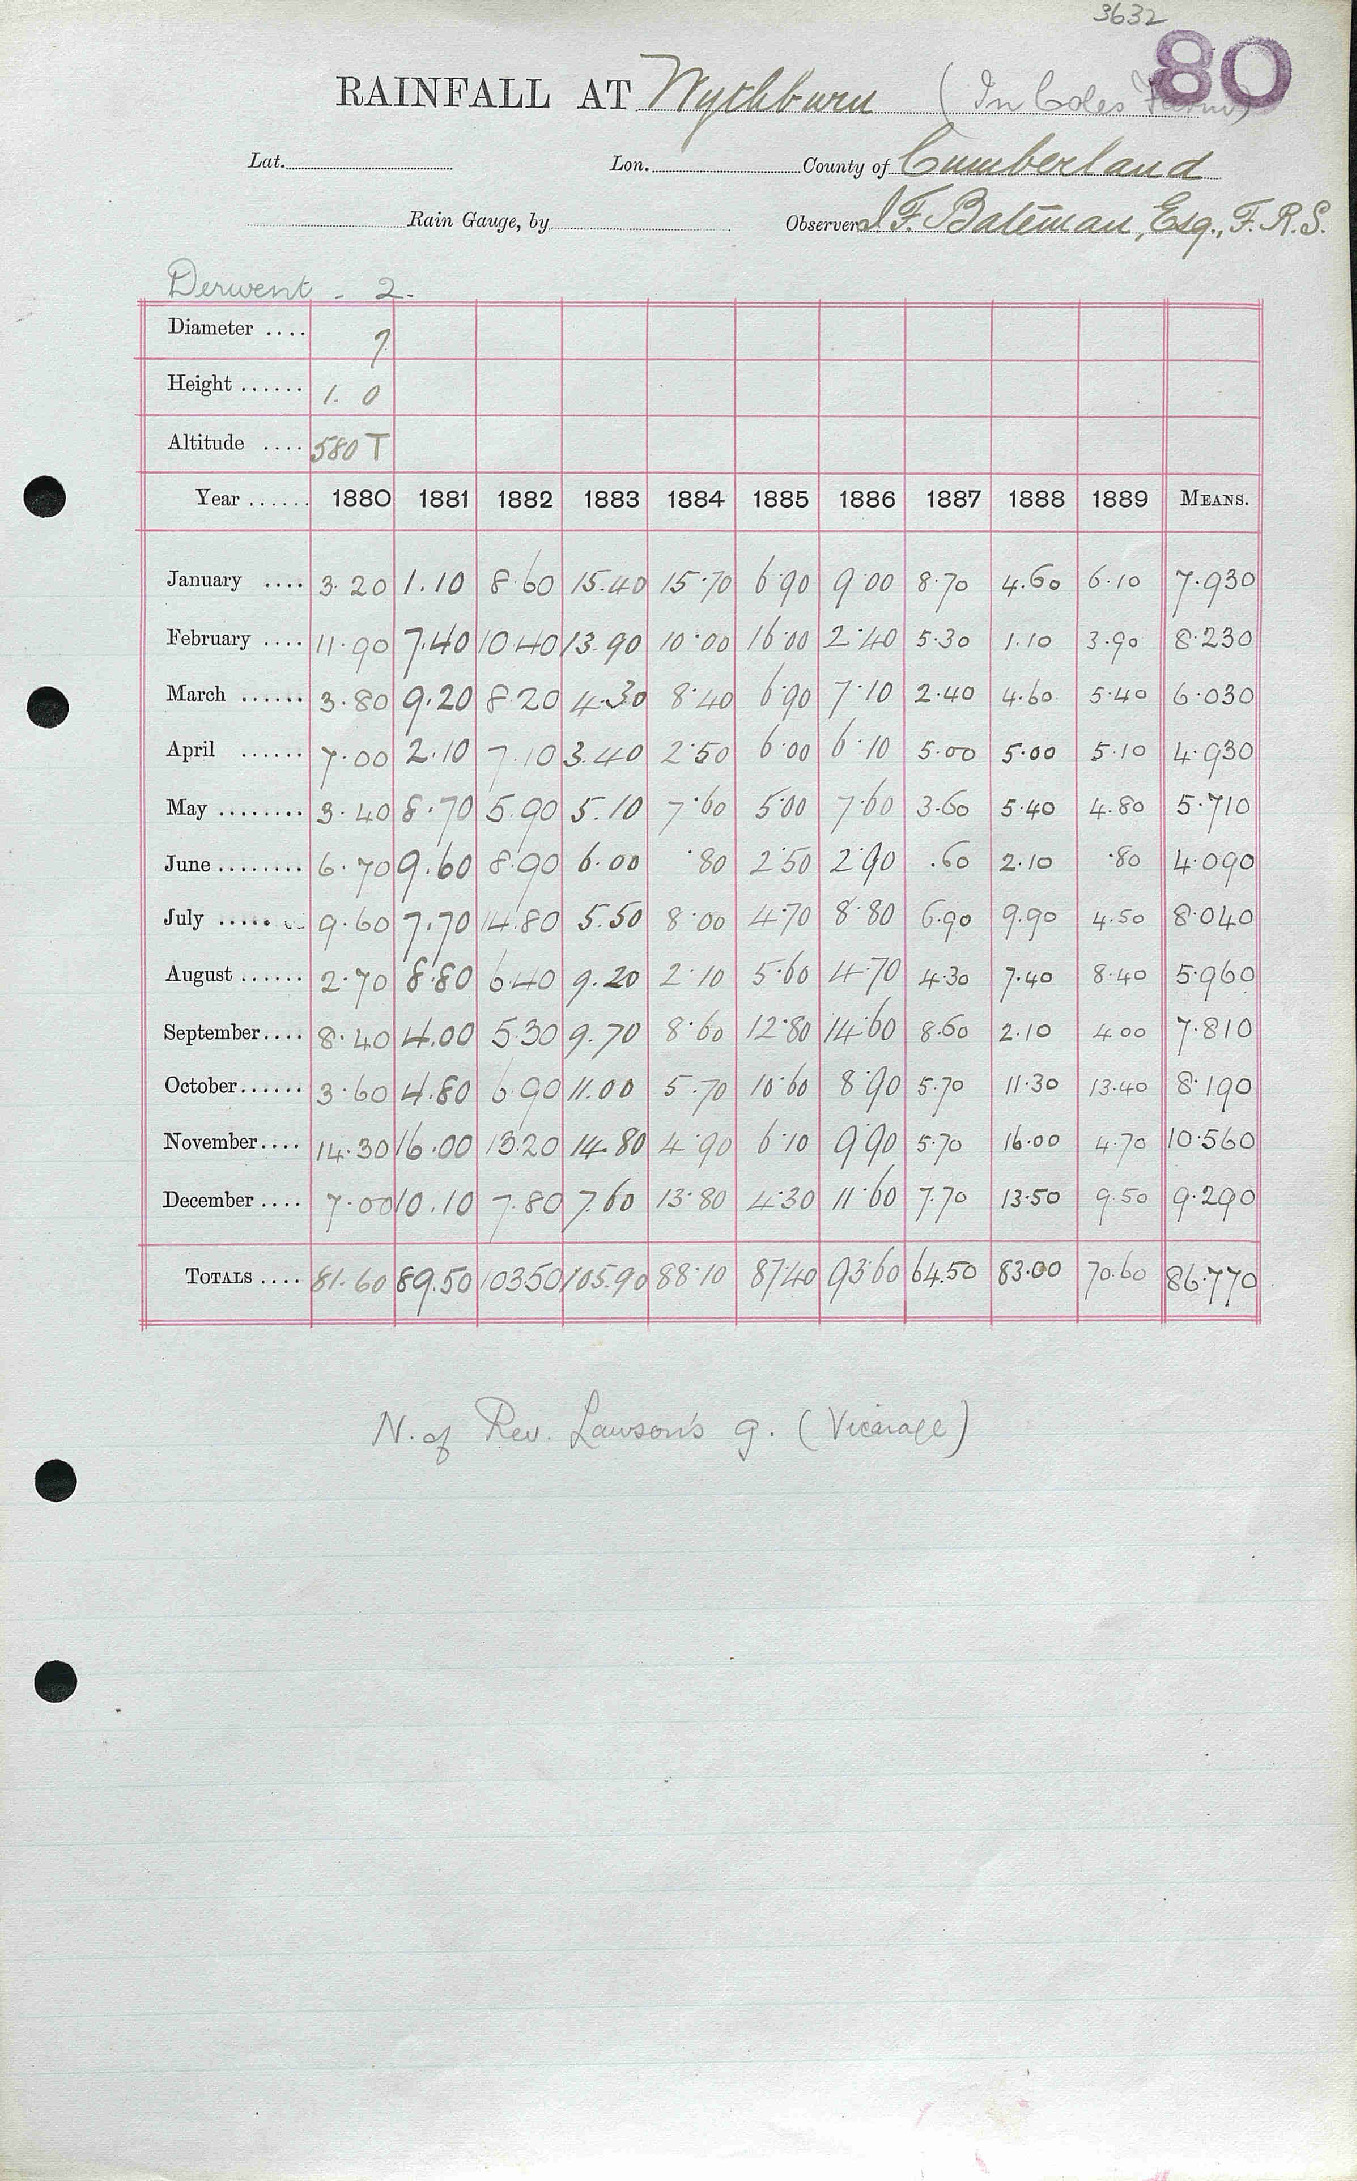 3632
80
RAINFALL AT Wythburn (In Coles Farm)
Lat. Lon. County of Cumberland
Rain Gauge, by Observer J. F. Bateman, Esq., F.R.S.
Derwent - 2.
Diameter .... 7
Height ...... 1. 0
Altitude .... 580 T
Year ...... 1880 1881 1882 1883 1884 1885 1886 1887 1888 1889 MEANS.
January .... 3.20 1.10 8.60 15.40 15.70 6.90 9.00 8.70 4.60 6.10 7.930
February .... 11.90 7.40 10.40 13.90 10.00 16.00 2.40 5.30 1.10 3.90 8.230
March ...... 3.80 9.20 8.20 4.30 8.40 6.90 7.10 2.40 4.60 5.40 6.030
April ...... 7.00 2.10 7.10 3.40 2.50 6.00 6.10 5.00 5.00 5.10 4.930
May ........ 3.40 8.70 5.90 5.10 7.60 5.00 7.60 3.60 5.40 4.80 5.710
June ........ 6.70 9.60 8.90 6.00 .80 2.50 2.90 .60 2.10 .80 4.090
July ..... 9.60 7.70 14.80 5.50 8.00 4.70 8.80 6.90 9.90 4.50 8.040
August ...... 2.70 8.80 6.40 9.20 2.10 5.60 4.70 4.30 7.40 8.40 5.960
September .... 8.40 4.00 5.30 9.70 8.60 12.80 14.60 8.60 2.10 4.00 7.810
October ...... 3.60 4.80 6.90 11.00 5.70 10.60 8.90 5.70 11.30 13.40 8.190
November .... 14.30 16.00 13.20 14.80 4.90 6.10 9.90 5.70 16.00 4.70 10.560
December .... 7.00 10.10 7.80 7.60 13.80 4.30 11.60 7.70 13.50 9.50 9.290
TOTALS .... 81.60 89.50 103.50 105.90 88.10 87.40 93.60 64.50 83.00 70.60 86.770
N. of Rev. Lawson's g. (Vicarage)